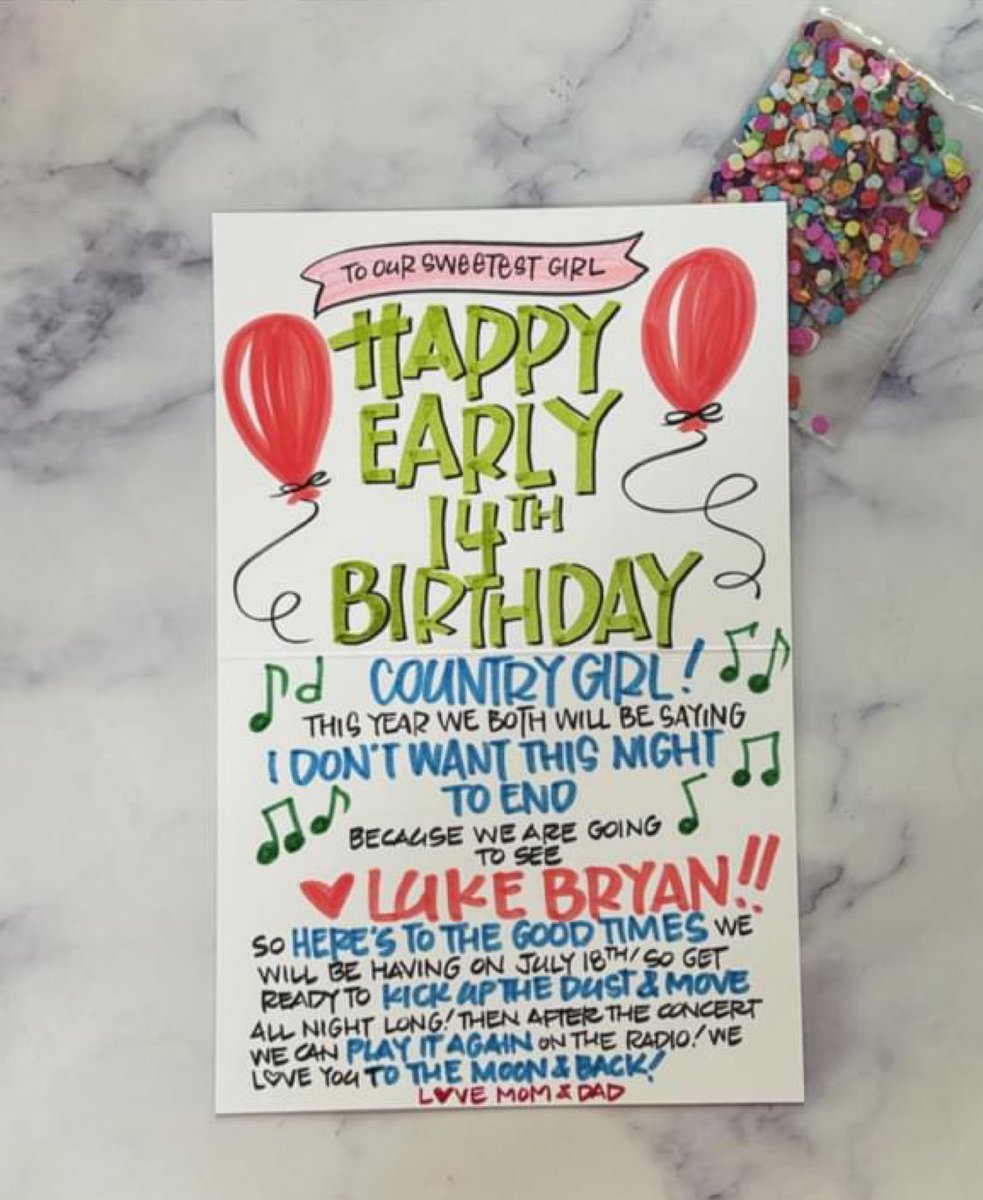 TO OUR SWEETEST GIRL
HAPPY
EARLY
14TH
BIRTHDAY
COUNTRY GIRL!
THIS YEAR WE BOTH WILL BE SAYING
I DON'T WANT THIS NIGHT
TO END
BECAUSE WE ARE GOING
TO SEE
LUKE BRYAN!!
SO HERE'S TO THE GOOD TIMES WE
WILL BE HAVING ON JULY 18TH! SO GET
READY TO KICK UP THE DUST & MOVE
ALL NIGHT LONG! THEN AFTER THE CONCERT
WE CAN PLAY IT AGAIN ON THE RADIO! WE
LOVE YOU TO THE MOON & BACK!
LOVE MOM & DAD